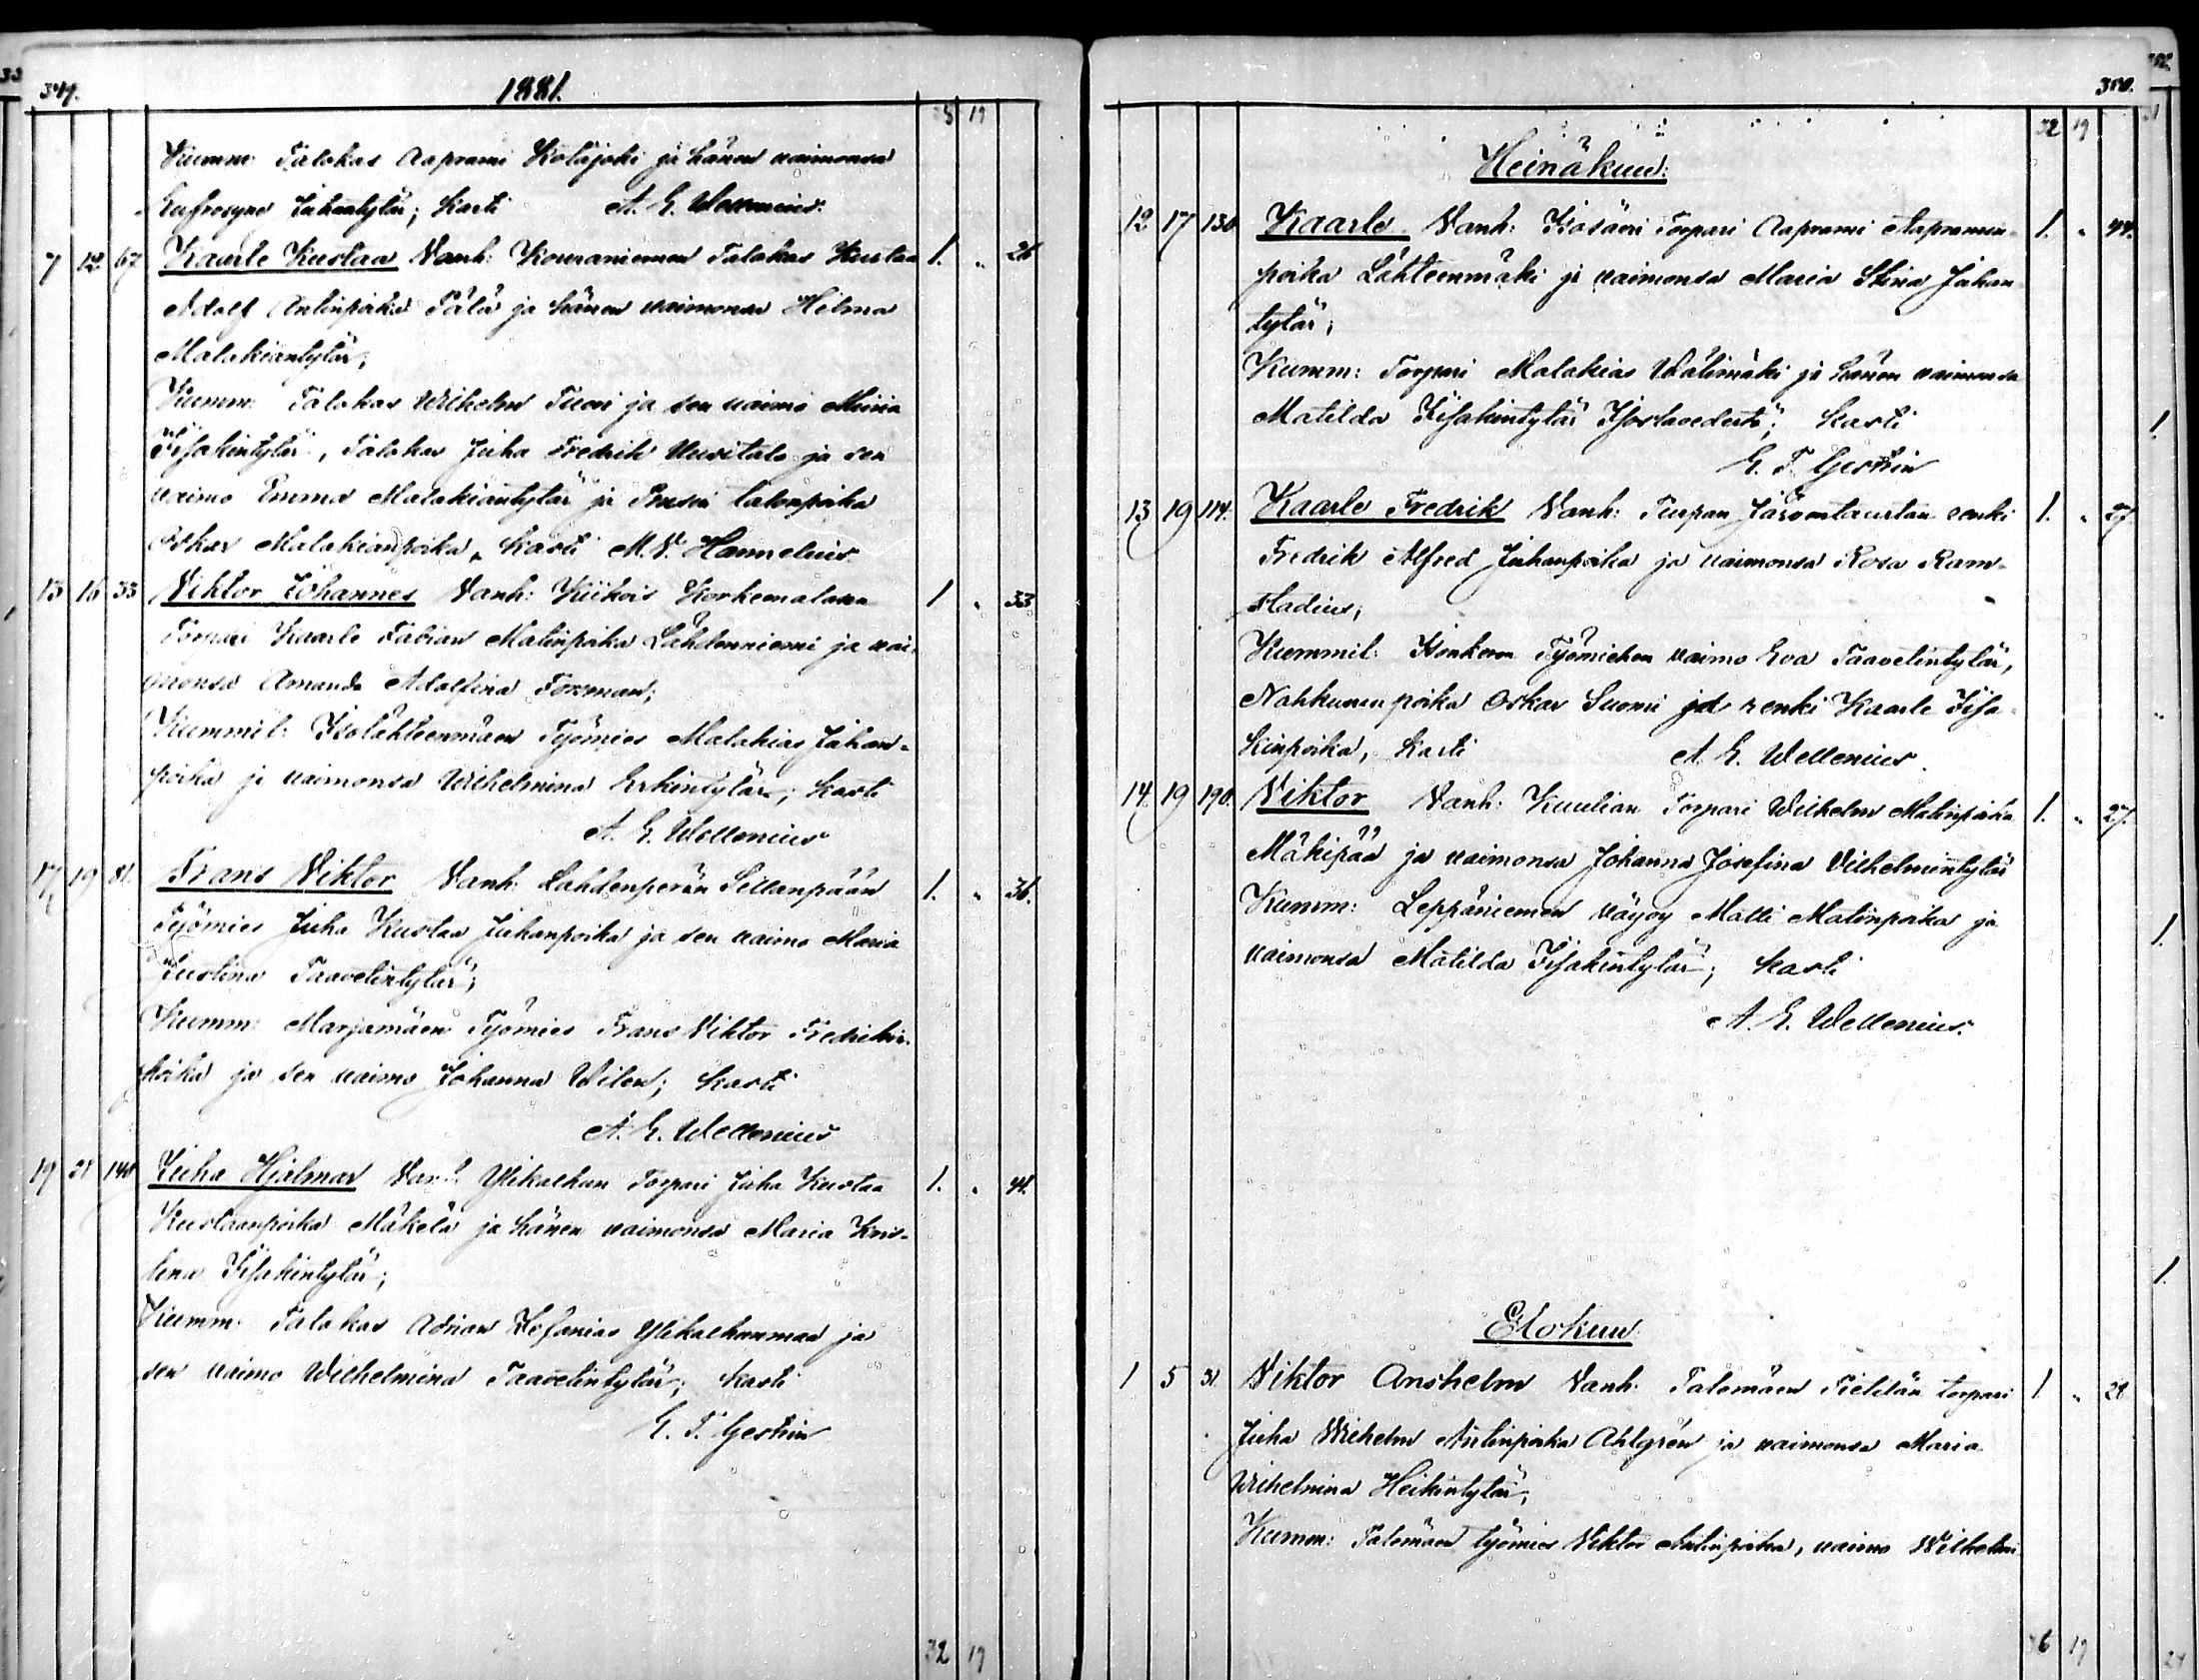 349.
1881.
28 19
Kumm: Talokas Aaprami Kotajoki ja hänen vaimonsa
Eufrosyne Juhantytär; kasti A. E. Wellenius.
7 12 67 Kaarle Kustaa Vanh: Kouraniemen Talokas Kustaa 1. „ 26
Adolf Antinpoika Pälä ja hänen vaimonsa Hilma
Malakiantytär;
Kumm: Talokas Wilhelm Tuori ja sen vaimo Miina
Iisakintytär, Talokas Juha Fredrik Uusitalo ja sen
vaimo Emma Malakiantytär ja talonpoika
Oskar Malakianpoika, kasti M. V. Hannelius.
13 16 33 Viktor Johannes Vanh: Kiikois Korkemalasen 1 „ 33
Torpari Kaarle Fabian Matinpoika Lähdenniemi ja vai-
monsa Amanda Adolfina Forsman;
Kummil: Isolähteenmäen Työmies Malakias Juhan-
poika ja vaimonsa Wilhelmina Erkintytär; kasti
A. E. Wellenius
17 19 81. Frans Viktor Vanh: Lahdenperän Sillanpään 1. „ 36.
Työmies Juha Kustaa Juhanpoika ja sen vaimo Maria
Justina Taavetintytär;
Kumm: Marjamäen Työmies Frans Viktor Fredrikin-
poika ja sen vaimo Johanna Wilen; kasti
A. E. Wellenius
19 28 140 Juha Hjalmar Vanh: Ylikalkun Torpari Juha Kustaa 1. „ 41.
Kustaanpoika Mäkelä ja hänen vaimonsa Maria Kris-
tina Iisakintytär;
Kumm: Talokas Adrian Sefanias Ylikalkunmaa ja
sen vaimo Wilhelmina Taavetintytär; kasti
E. T. Gestrin
32 19
350.
32 19
Heinäkuu:
12 17 130 Kaarle Vanh: Isosäeri Torpari Aaprami Aapramin- 1. „ 44.
poika Lähteenmäki ja vaimonsa Maria Stina Juhan
tytär;
Kumm: Torpari Malakias Wälimäki ja hänen vaimonsa
Matilda Iisakintytär; kasti
E. T. Gestrin
13 19 114. Kaarle Fredrik Vanh: Tiurpan Järventaustan renki 1. „ 27
Fredrik Alfred Juhanpoika ja vaimonsa Rosa Ram-
stadius;
Kummil: Honkasen Työmiehen vaimo Eva Taavetintytär,
Nahkurin poika Oskar Suomi ja renki Kaarle Iisa-
kinpoika, kasti A. E. Wellenius.
14. 19 190. Viktor Vanh: Kuulian Torpari Wilhelm Matinpoika 1. „ 27.
Mäkipää ja vaimonsa Johanna Josefina Vilhelmintytär
Kumm: Leppäniemen vävyy Matti Matinpoika ja
vaimonsa Matilda Iisakintytär; kasti
A. E. Wellenius.
Elokuu.
1 5 31. Viktor Anshelm Vanh: Talomäen Tietilän torpari 1. „ 28
Juha Wilhelm Antinpoika Ahlgren ja vaimonsa Maria
Wilhelmina Heikintytär;
Kumm: Talomäen työmies Viktor Antinpoika, vaimo Wilhelmi
6 19